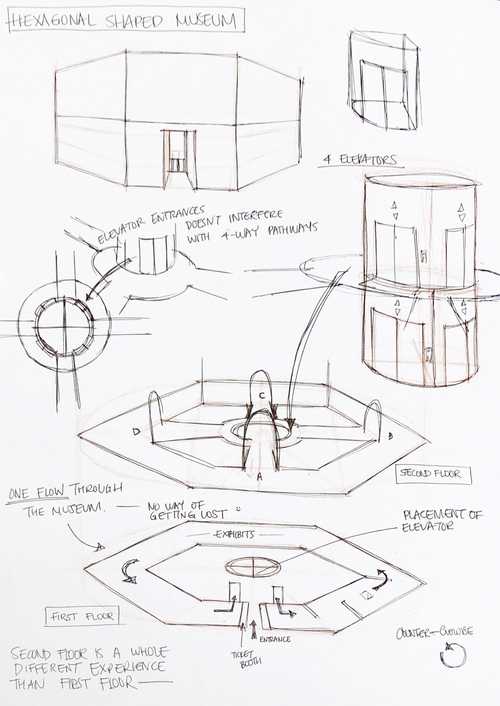 HEXAGONAL SHAPED MUSEUM
4 ELEVATORS
ELEVATOR ENTRANCES
DOESN'T INTERFERE
WITH 4-WAY PATHWAYS
C
D
B
A
SECOND FLOOR
ONE FLOW THROUGH
THE MUSEUM. — NO WAY OF
GETTING LOST
EXHIBITS
PLACEMENT OF
ELEVATOR
FIRST FLOOR
ENTRANCE
TICKET
BOOTH
COUNTER-CLOWISE
SECOND FLOOR IS A WHOLE
DIFFERENT EXPERIENCE
THAN FIRST FLOOR —